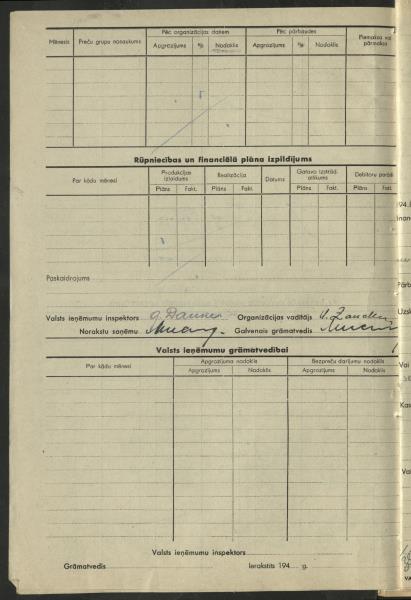 Mēnesis Preču grupu nosaukums Pēc organizācijas datiem Pēc pārbaudes Piemaksa vai pārmaksa
Apgrozījums % Nodoklis Apgrozījums % Nodoklis
Rūpniecības un financiālā plāna izpildījums
Par kādu mēnesi Produkcijas izlaidums Realizācija Datums Gatavo izstrād. atlikums Debitoru parādi
Plāns Fakt. Plāns Fakt. Plāns Fakt. Plāns Fakt.
Paskaidrojums
Valsts ieņēmumu inspektors Organizācijas vadītājs
Norakstu saņēmu Galvenais grāmatvedis
Valsts ieņēmumu grāmatvedībai
Par kādu mēnesi Apgrozījuma nodoklis Bezpreču darījumu nodoklis
Apgrozījums Nodoklis Apgrozījums Nodoklis
Valsts ieņēmumu inspektors
Grāmatvedis Ierakstīts 194 g.